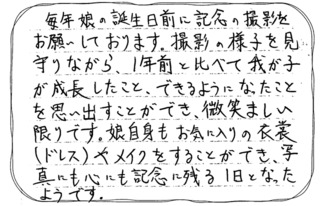 毎年娘の誕生日前に記念の撮影を
お願いしております。撮影の様子を見
守りながら、1年前と比べて我が子
が成長したこと、できるようになったこと
を思い出すことができ、微笑ましい
限りです。娘自身もお気に入りの衣裳
(ドレス)やメイクをすることができ、写
真にも心にも記念に残る1日となった
ようです。